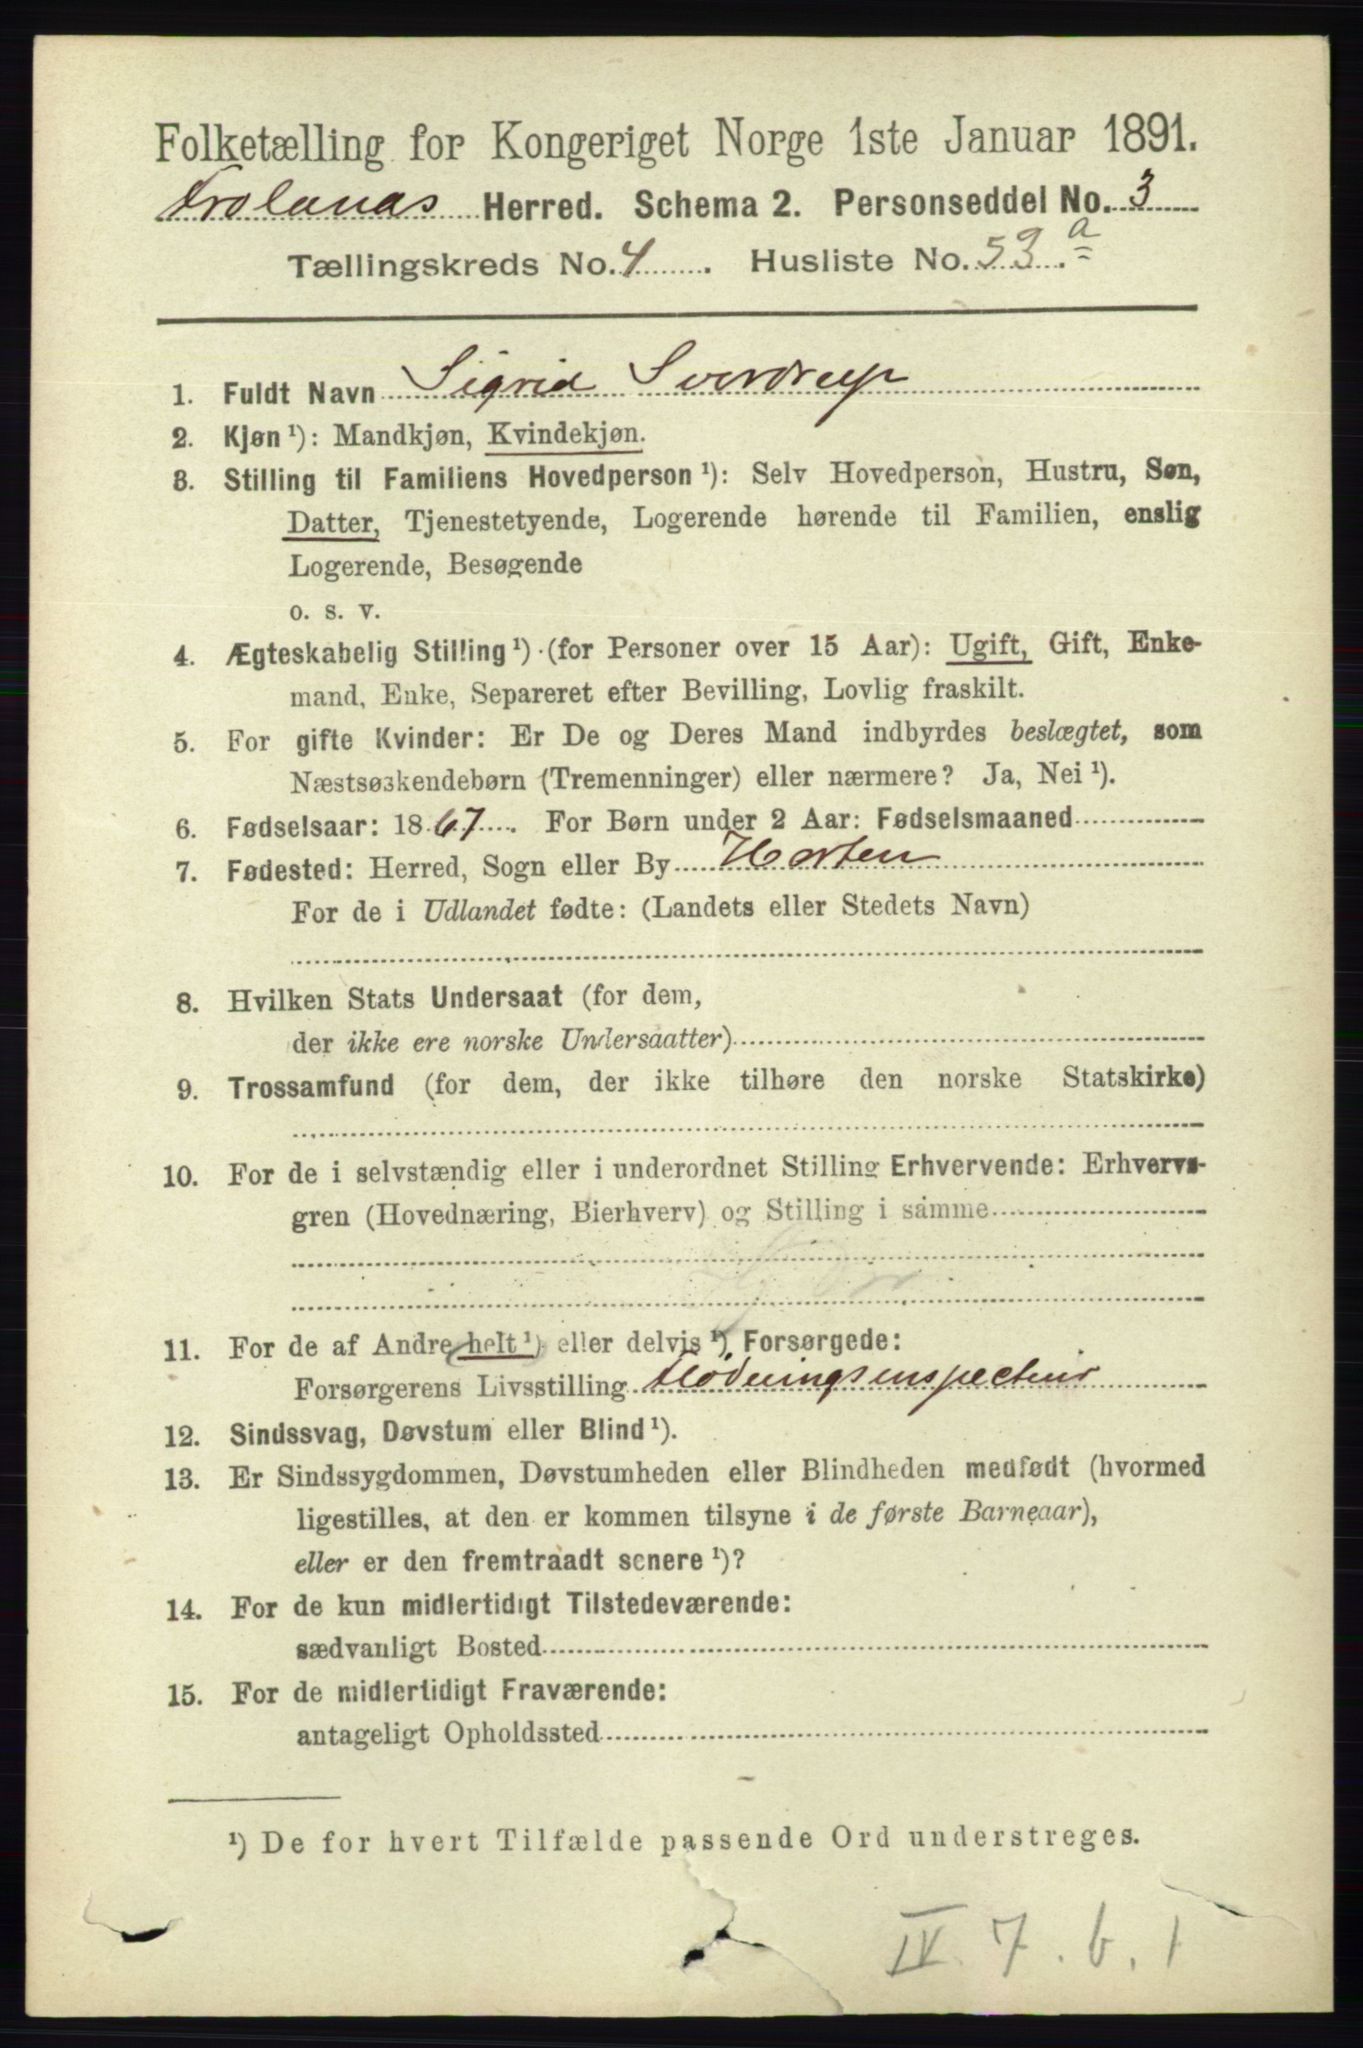 Folketælling for Kongeriget Norge 1ste Januar 1891.
Trolanas Herred. Schema 2. Personseddel No. 3
Tællingskreds No. 4. Husliste No. 53 a
1. Fuldt Navn Sigrid Sverdrup
2. Kjøn ¹): Mandkjøn, Kvindekjøn.
3. Stilling til Familiens Hovedperson ¹): Selv Hovedperson, Hustru, Søn,
Datter, Tjenestetyende, Logerende hørende til Familien, enslig
Logerende, Besøgende
o. s. v.
4. Ægteskabelig Stilling ¹) (for Personer over 15 Aar): Ugift, Gift, Enke-
mand, Enke, Separeret efter Bevilling, Lovlig fraskilt.
5. For gifte Kvinder: Er De og Deres Mand indbyrdes beslægtet, som
Næstsøskendebørn (Tremenninger) eller nærmere? Ja, Nei ¹).
6. Fødselsaar: 1867. For Børn under 2 Aar: Fødselsmaaned
7. Fødested: Herred, Sogn eller By Horten
For de i Udlandet fødte: (Landets eller Stedets Navn)
8. Hvilken Stats Undersaat (for dem,
der ikke ere norske Undersaatter)
9. Trossamfund (for dem, der ikke tilhøre den norske Statskirke)
10. For de i selvstændig eller i underordnet Stilling Erhvervende: Erhvervs-
gren (Hovednæring, Bierhverv) og Stilling i samme
11. For de af Andre helt ¹) eller delvis ¹) Forsørgede:
Forsørgerens Livsstilling Flødningsinspecteur
12. Sindssvag, Døvstum eller Blind ¹).
13. Er Sindssygdommen, Døvstumheden eller Blindheden medfødt (hvormed
ligestilles, at den er kommen tilsyne i de første Barneaar),
eller er den fremtraadt senere ¹)?
14. For de kun midlertidigt Tilstedeværende:
sædvanligt Bosted
15. For de midlertidigt Fraværende:
antageligt Opholdssted
¹) De for hvert Tilfælde passende Ord understreges.
IV. 7. b. 1